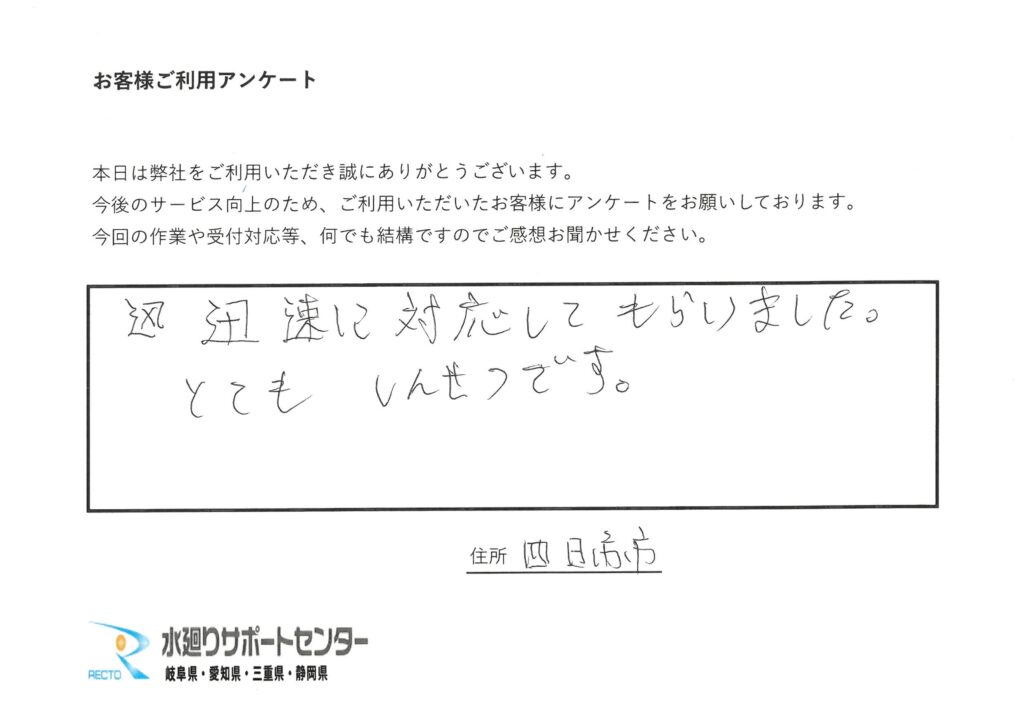 お客様ご利用アンケート
本日は弊社をご利用いただき誠にありがとうございます。
今後のサービス向上のため、ご利用いただいたお客様にアンケートをお願いしております。
今回の作業や受付対応等、何でも結構ですのでご感想お聞かせください。
迅 迅速に対応してもらいました。
とても しんせつです。
住所 四日市市
RECTO 水廻りサポートセンター
岐阜県・愛知県・三重県・静岡県